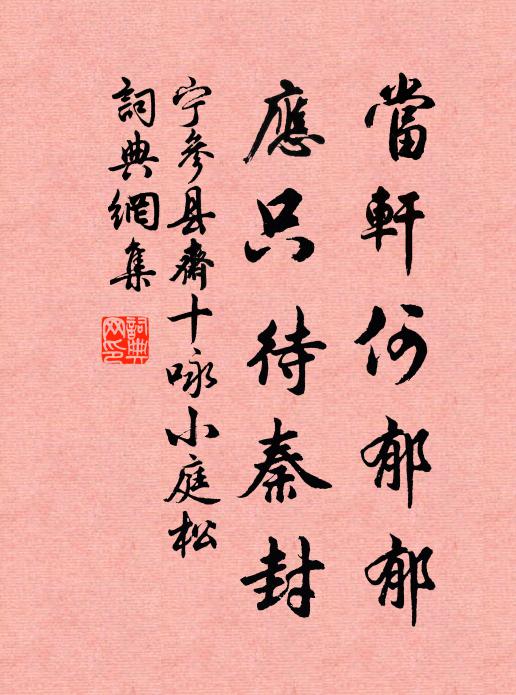 當軒何郁郁
應只待秦封
宁參县齋十咏小庭松
詞典網集
詞典网印